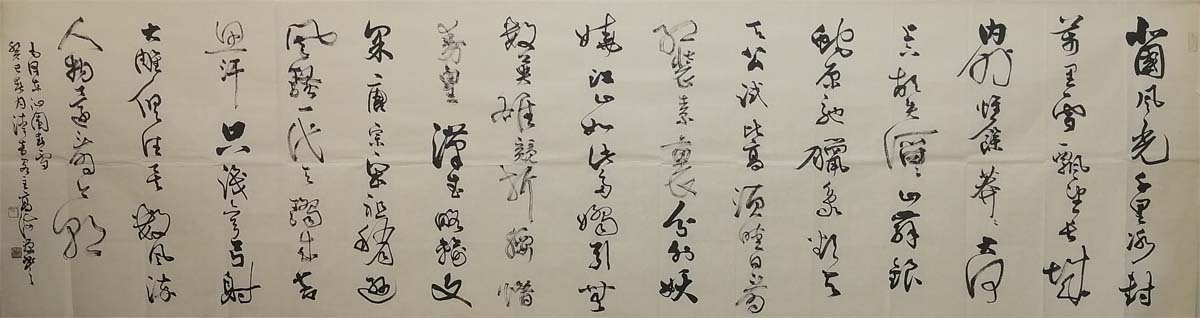 北國风光千里冰封
萬里雪飄望长城
内外惟餘莽莽大河
上下顿失滔滔山舞銀
蛇原驰蠟象欲与
天公试比高须晴日看
红装素裹分外妖
娆江山如此多嬌引無
数英雄競折腰惜
秦皇漢武略输文
采唐宗宋祖稍逊
风骚一代天骄成吉
思汗只识弯弓射
大雕俱往矣数风流
人物還看今朝
毛泽东沁園春雪
癸巳春月